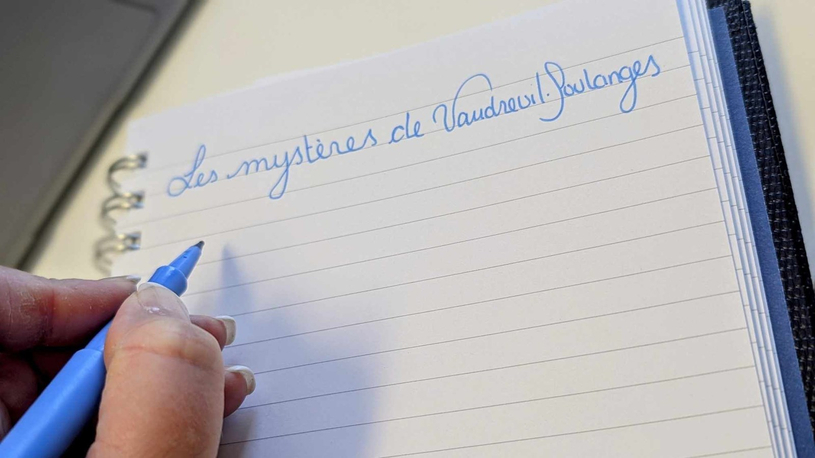 Les mystères de Vaudreuil-Soulanges